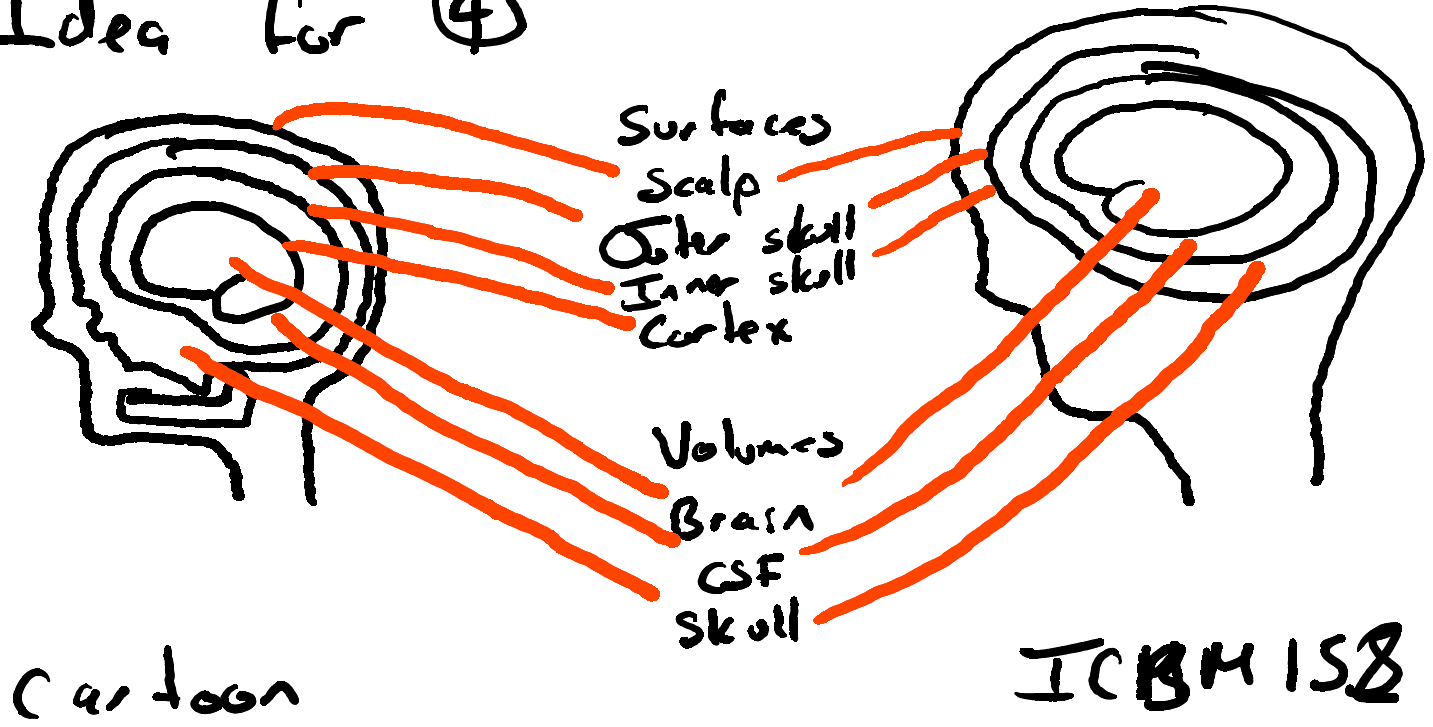 Idea for ④
Surfaces
Scalp
Outer skull
Inner skull
Cortex
Volumes
Brain
CSF
Skull
Cartoon
ICBM 152